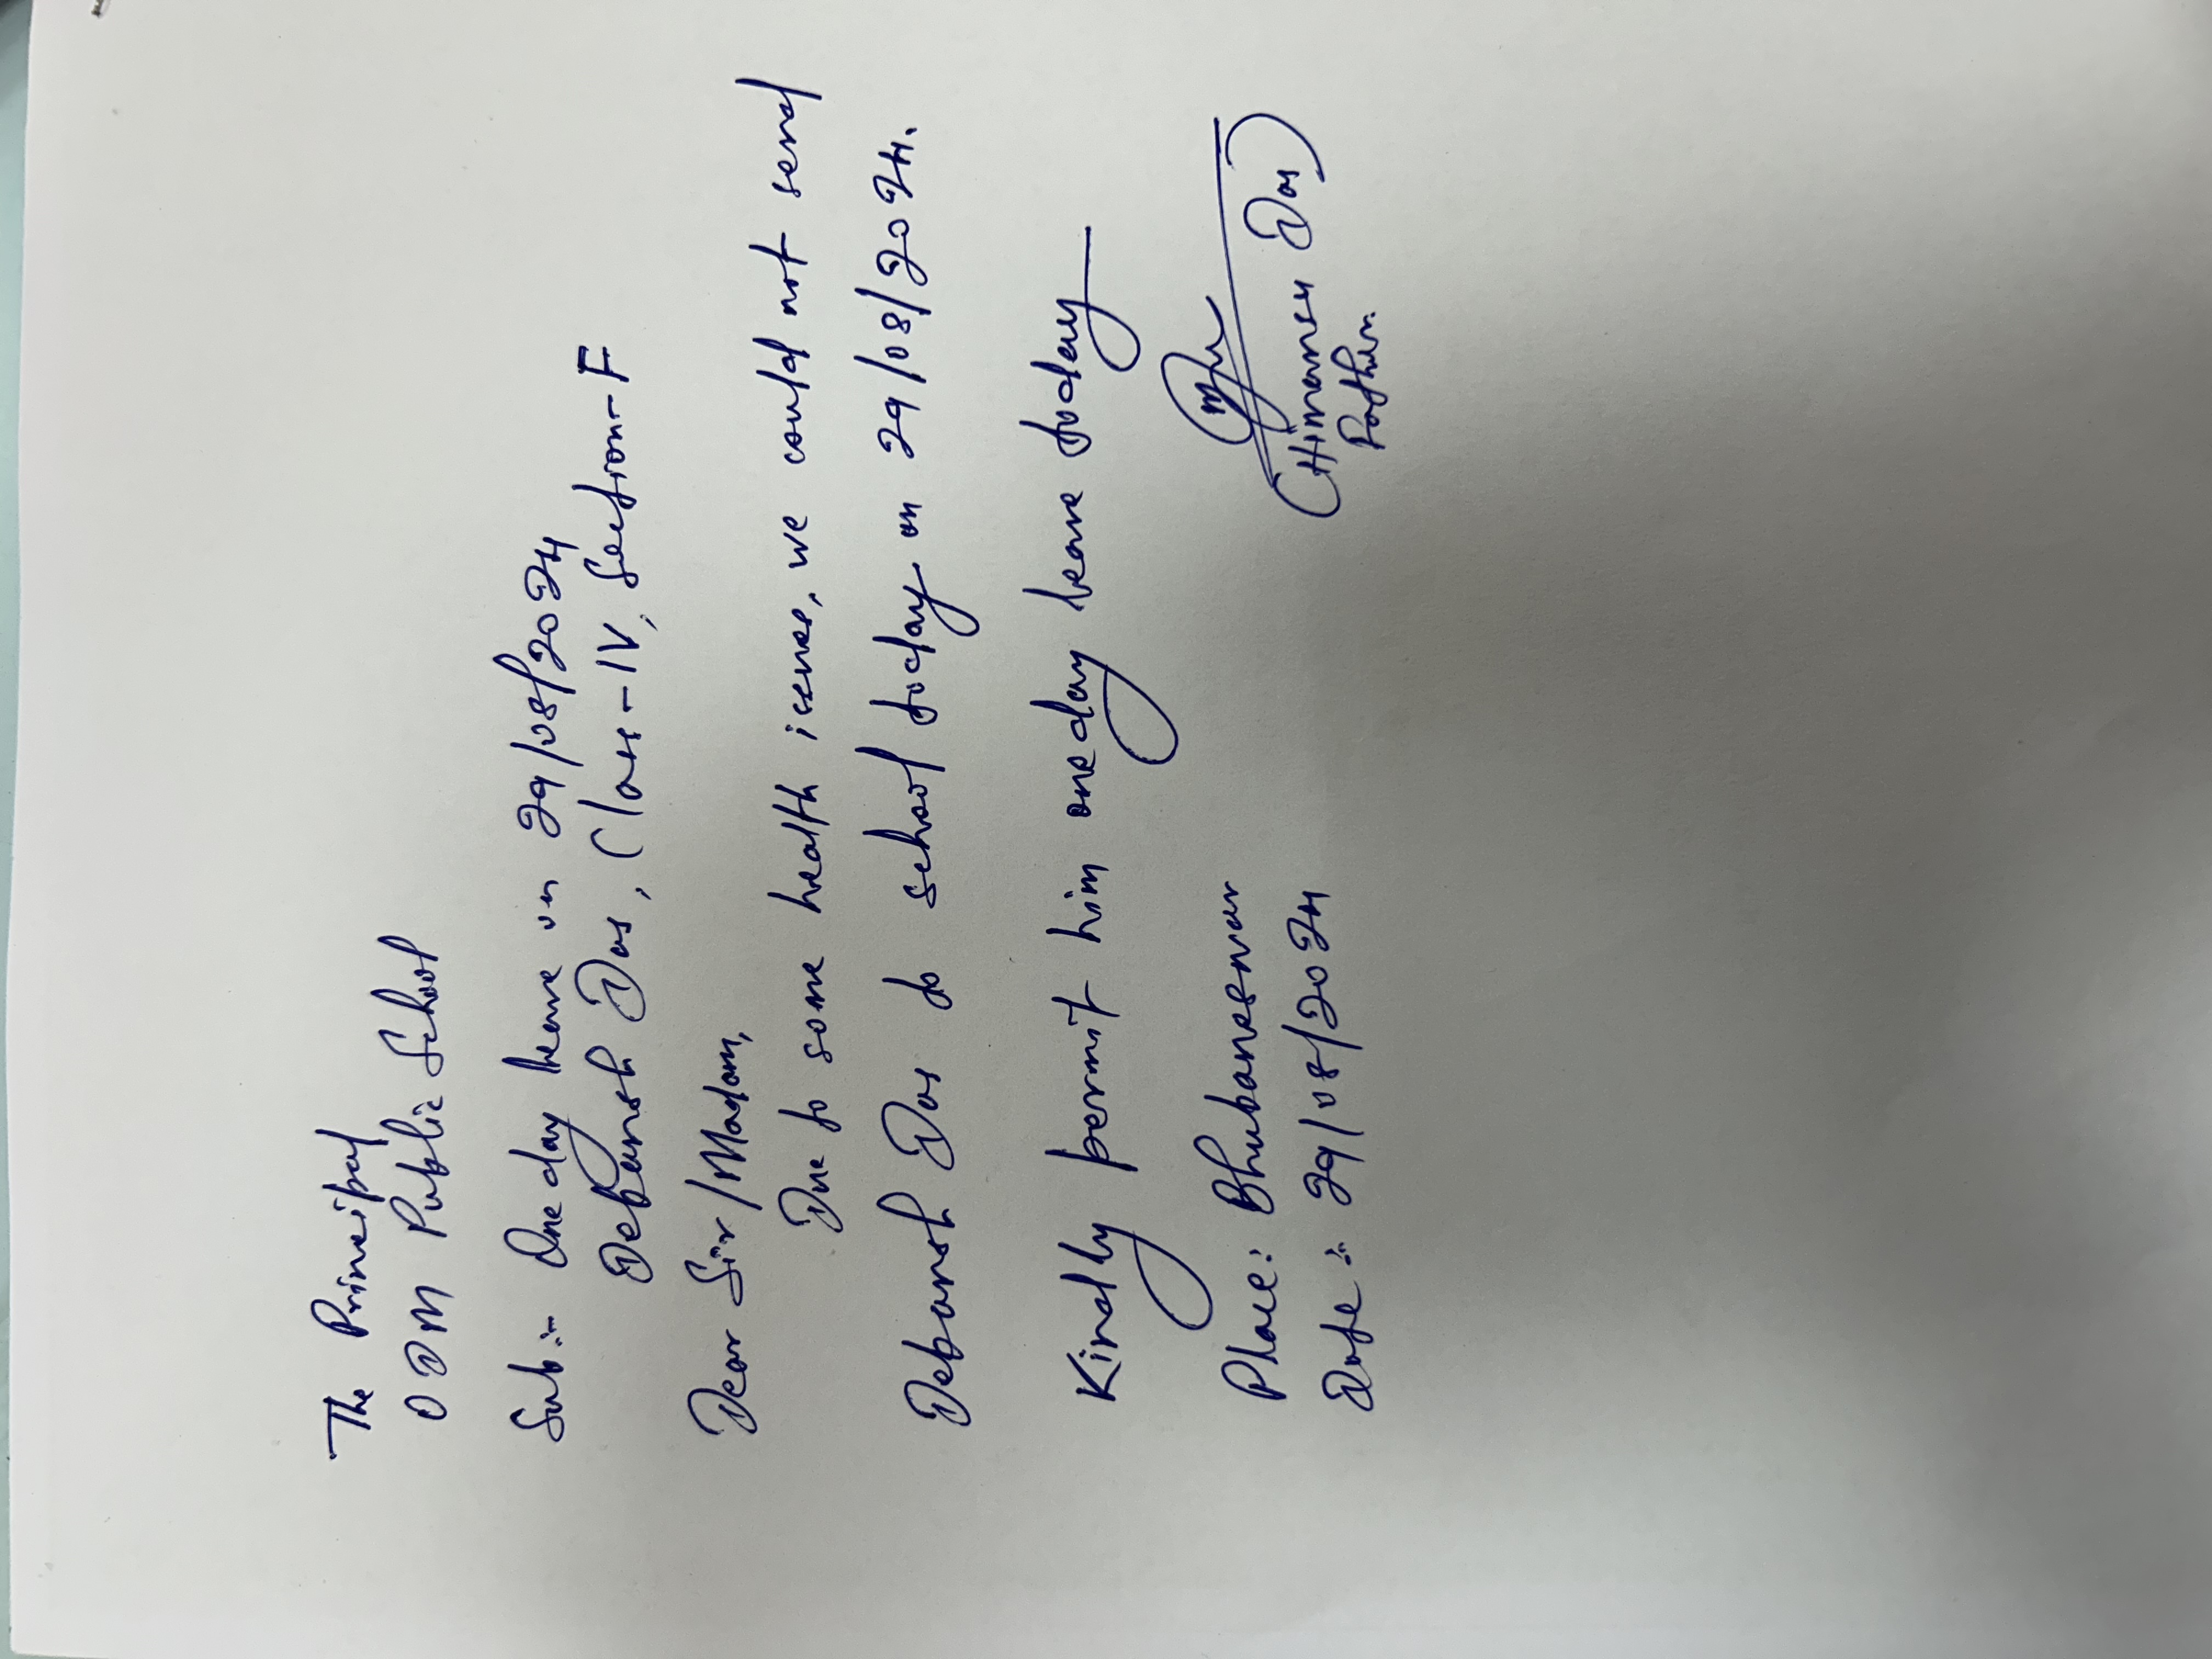 The Principal
ODM Public School
Sub:- One day leave on 29/08/2024
Debansh Das, Class-IV, Section-F
Dear Sir/Madam,
Due to some health issues, we could not send
Debansh Das to school today on 29/08/2024.
Kindly permit him oneday leave today
(Himansu Das)
Father.
Place: Bhubaneswar
Date:- 29/08/2024